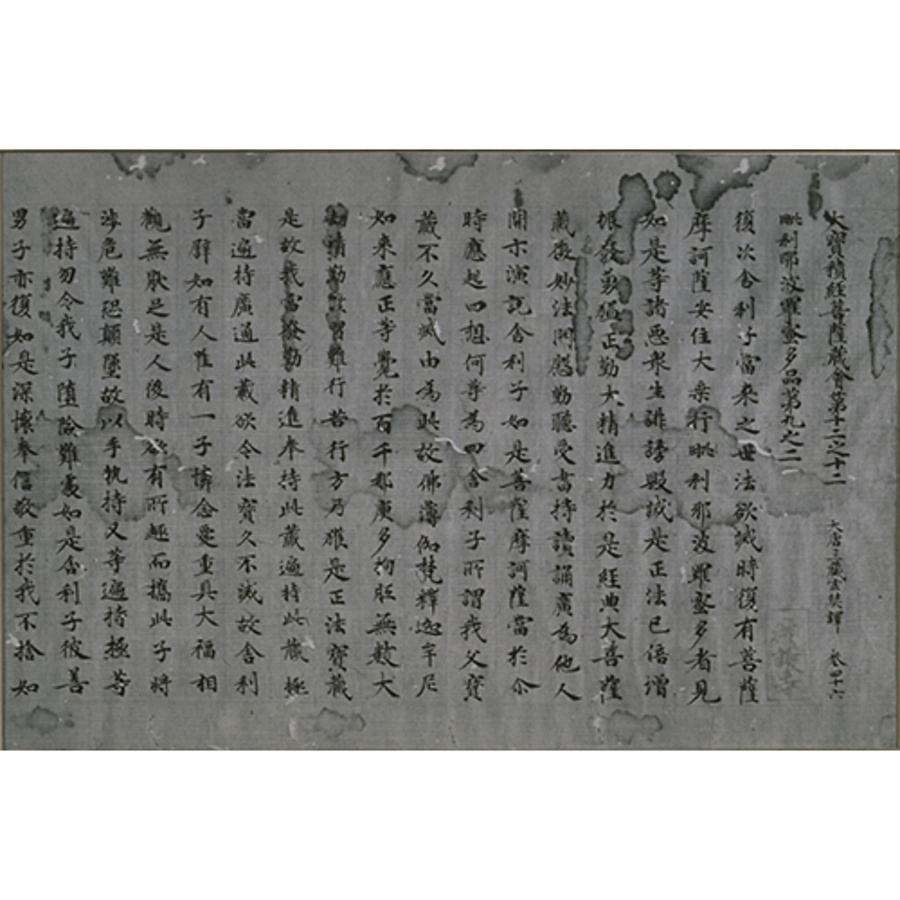 大寶積經菩薩藏會第十二之十二 大唐三藏玄奘譯 卷四十六
毗利耶波羅蜜多品第九之二
復次舍利子當來之世法欲滅時復有菩薩
摩訶薩安住大乘行毗利耶波羅蜜多者見
如是等諸惡衆生誹謗毀滅是正法已倍增
振發勤猛正勤大精進力於是經典大菩薩
藏微妙法門慇勤聽受書持讀誦廣為他人
開示演說舍利子如是菩薩摩訶薩當於尒
時應起四想何等為四舍利子所謂我父寶
藏不久當滅由為此故佛薄伽梵釋迦牟尼
如來應正等覺於百千那庾多拘胝無數大
劫精勤修習難行苦行方乃獲是正法寶藏
是故我當發勤精進奉持此藏遍持此藏極
當遍持廣通此藏欲令法寶久不滅故舍利
子譬如有人唯有一子憐念愛重具大福相
觀無厭足是人後時欲有所趣而攜此子將
涉危難恐顛墜故以手執持又等遍持極等
遍持勿令我子墮險難處如是舍利子彼善
男子亦復如是深懷奉信敬重於我不捨如